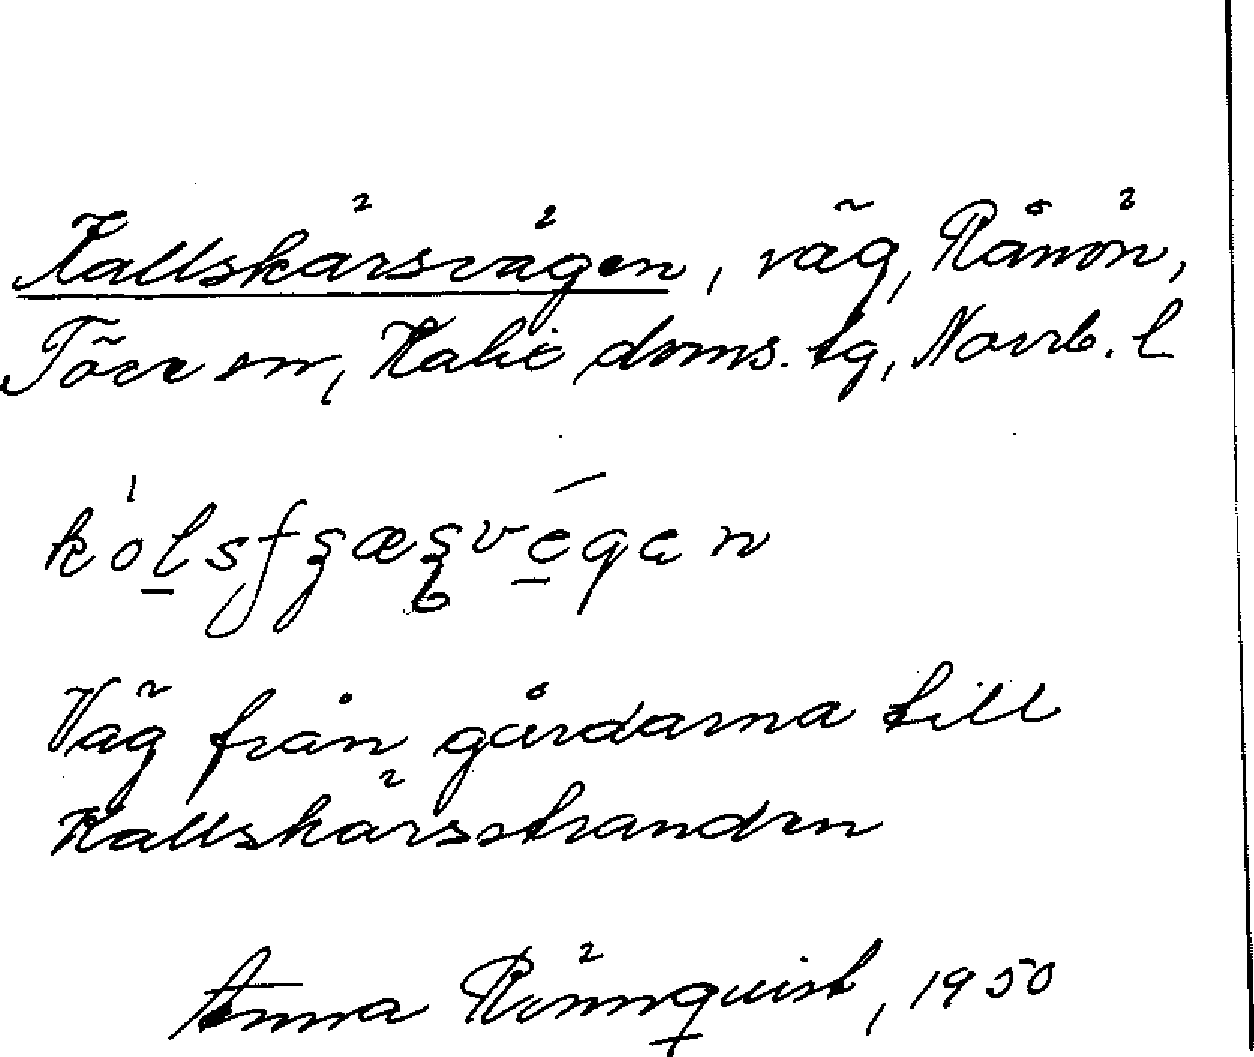 Kallskärsvägen, väg, Rånön,
Töre sn, Kalix doms. tg, Norrb. l
Väg från gårdarna till
Kallskärsstranden
Anna Rönnquist, 1950